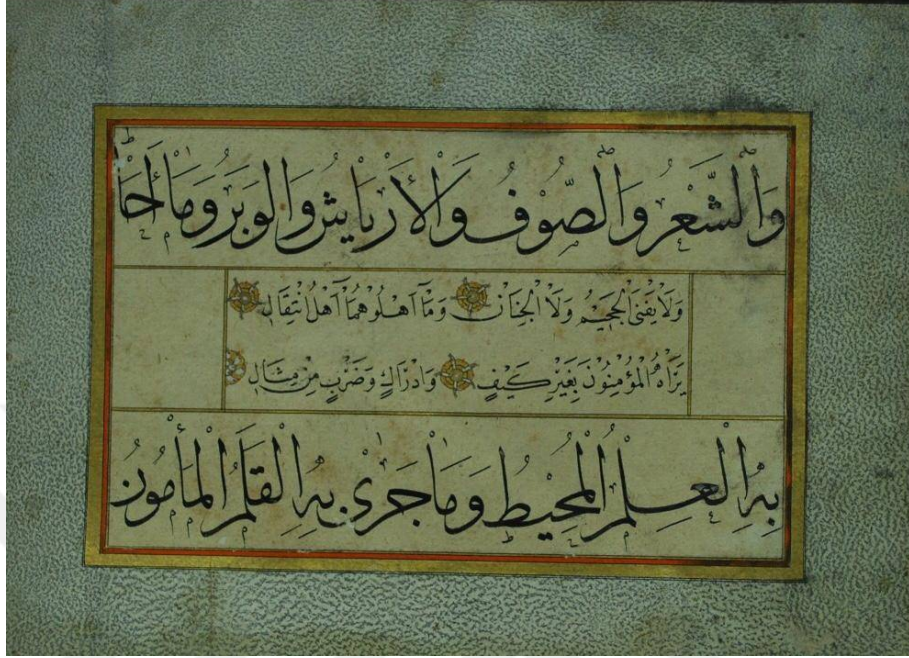 وَالشَّعْرُ وَالصُّوْفُ وَالْأَرْيَاشُ وَالْوَبَرُ وَمَا أَحَاطَ
وَلَا يَفْنَى الْجَحِيْمُ وَلَا الْجِنَانُ وَمَا اَهْلُوْهُمَا اَهْلُ انْتِقَالِ
يَرَاهُ الْمُؤْمِنُوْنَ بِغَيْرِ كَيْفٍ وَادْرَاكٍ وَضَرْبٍ مِنْ مِثَالِ
بِهِ الْعِلْمُ الْمُحِيْطُ وَمَا جَرٰى بِهِ الْقَلَمُ الْمَأْمُوْنُ